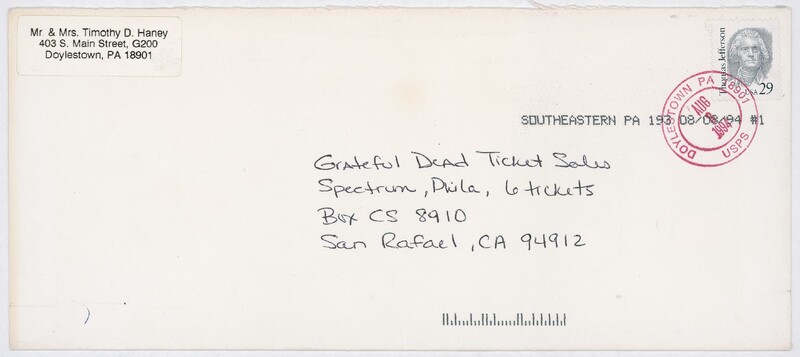 Mr. & Mrs. Timothy D. Haney
403 S. Main Street, G200
Doylestown, PA 18901
Thomas Jefferson
USA 29
DOYLESTOWN PA 18901
AUG
8
1994
USPS
SOUTHEASTERN PA 193 08/08/94 #1
Grateful Dead Ticket Sales
Spectrum, Phila, 6 tickets
Box CS 8910
San Rafael, CA 94912